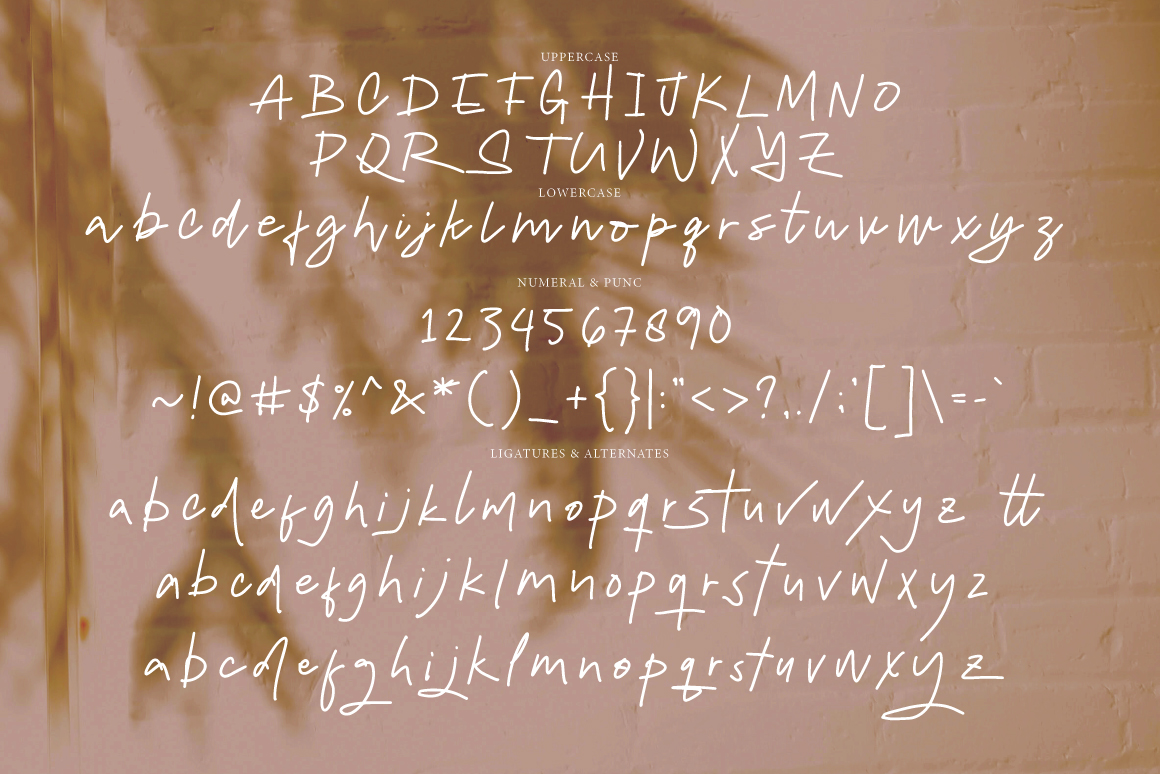 UPPERCASE
A B C D E F G H I J K L M N O
P Q R S T U V W X Y Z
LOWERCASE
a b c d e f g h i j k l m n o p q r s t u v w x y z
NUMERAL & PUNC
1 2 3 4 5 6 7 8 9 0
~ ! @ # $ % ^ & * ( ) _ + { } | : " < > ? , . / ; ' [ ] \ = - `
LIGATURES & ALTERNATES
a b c d e f g h i j k l m n o p q r s t u v w x y z tt
a b c d e f g h i j k l m n o p q r s t u v w x y z
a b c d e f g h i j k l m n o p q r s t u v w x y z